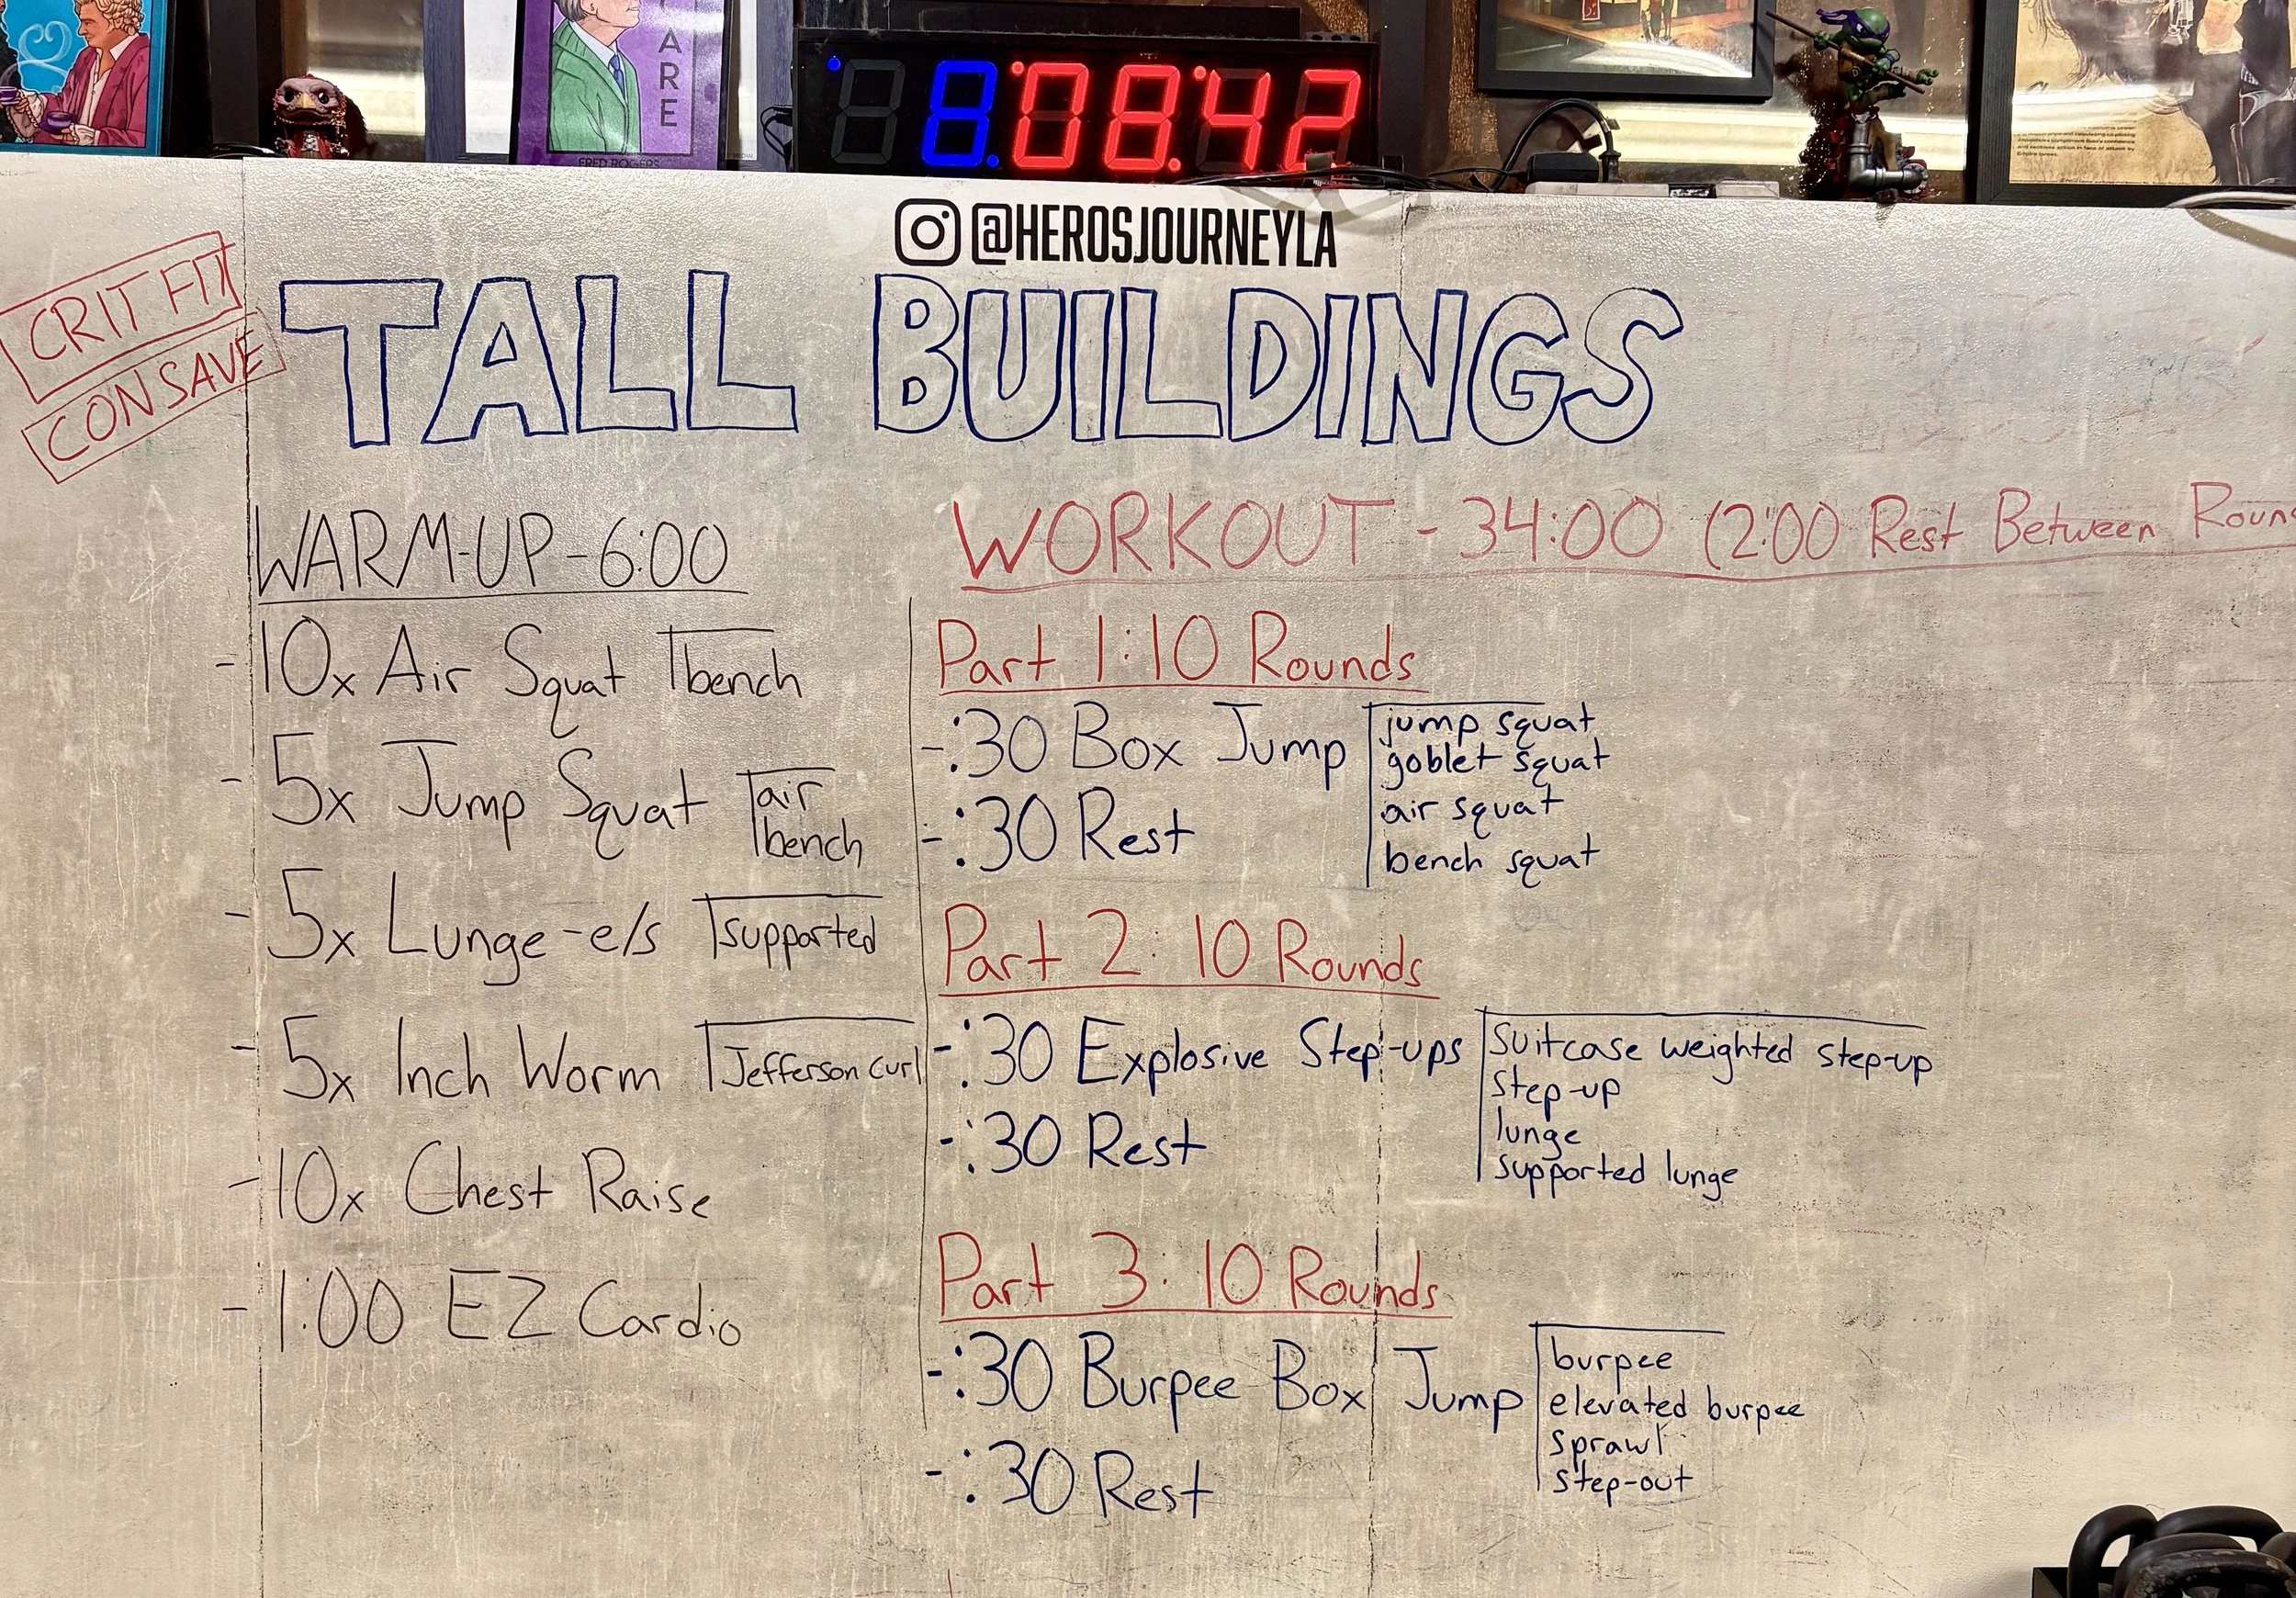 CARE
FRED ROGERS
8:08:42
@HEROSJOURNEYLA
CRIT FIT
CON SAVE
TALL BUILDINGS
WARM-UP-6:00
-10x Air Squat bench
-5x Jump Squat air
bench
-5x Lunge-e/s supported
-5x Inch Worm Jefferson curl
-10x Chest Raise
-1:00 EZ Cardio
WORKOUT - 34:00 (2:00 Rest Between Roun
Part 1:10 Rounds
-:30 Box Jump
-:30 Rest
jump squat
goblet squat
air squat
bench squat
Part 2: 10 Rounds
-:30 Explosive Step-ups
-:30 Rest
suitcase weighted step-up
step-up
lunge
supported lunge
Part 3: 10 Rounds
-:30 Burpee Box Jump
-:30 Rest
burpee
elevated burpee
sprawl
step-out